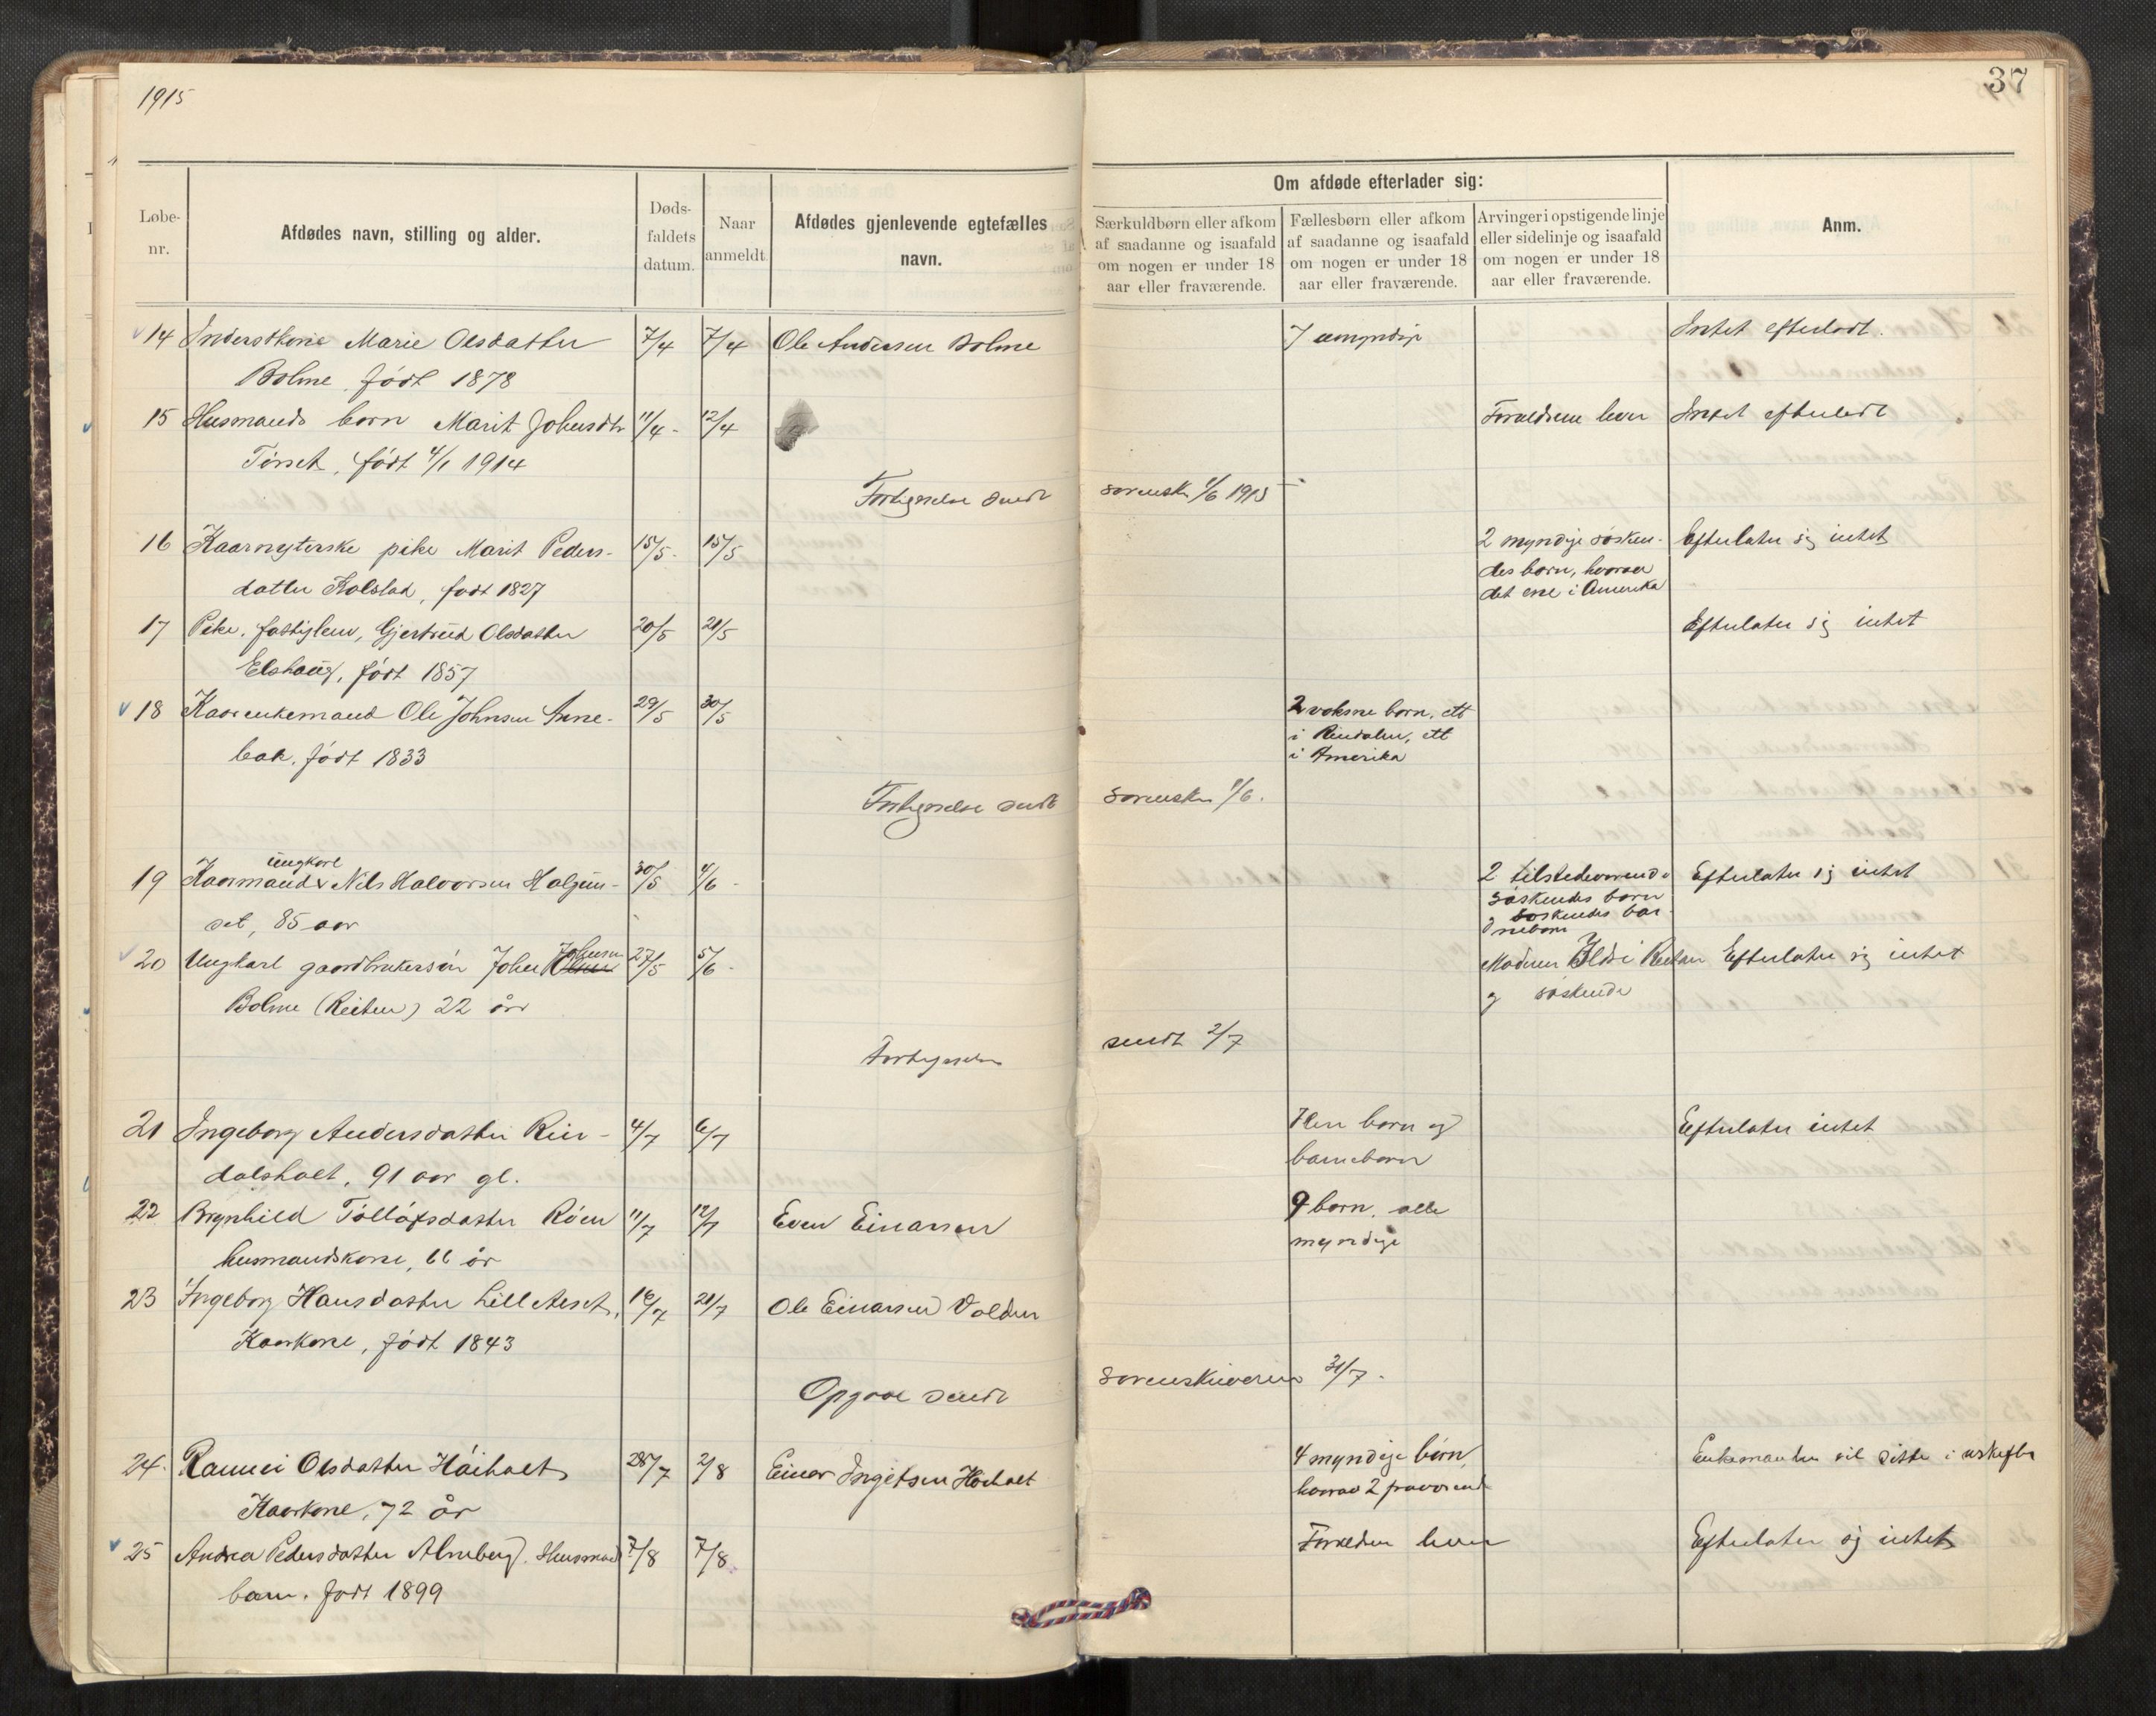 1915
37
Løbe-
nr.
Afdødes navn, stilling og alder.
Døds-
faldets
datum.
Naar
anmeldt.
Afdødes gjenlevende egtefælles
navn.
Om afdøde efterlader sig:
Særkuldbørn eller afkom
af saadanne og isaafald
om nogen er under 18
aar eller fraværende.
Fællesbørn eller afkom
af saadanne og isaafald
om nogen er under 18
aar eller fraværende.
Arvinger i opstigende linje
eller sidelinje og isaafald
om nogen er under 18
aar eller fraværende.
Anm.
14 Marie Olsdatter 7/4 7/4 Ole Andersen Bolme 7 umyndige Intet efterladt.
Bolme, født 1878
15 Husmands barn Marit Johnsdtr 11/4 12/4 Forældrene lever Intet efterladt
Tørset, født 4/1 1914
sendt sorensk. 1/6 1915
16 Kaarnyterske pike Marit Peders- 15/5 15/5 2 myndige søsken- Efterlater sig intet
datter Kolstad, født 1827 des børn, hvorav
det ene i Amerika
17 Pike, fattiglem, Gjertrud Olsdatter 20/5 21/5 Efterlater sig intet
Elshaug, født 1857
18 Kaarenkemand Ole Johnsen Anne- 29/5 30/5 2 voksne børn, ett
bak, født 1833 i Rindalen, ett
i Amerika
sendt sorenskr. 1/6.
ungkarl
19 Kaarmand Nils Halvorsen Halgun- 30/5 4/6 2 tilstedeværende Efterlater sig intet
set, 85 aar søskendes børn
søskendes bar-
nebørn
Johnsen
20 Ungkarl gaardbrukersøn John 27/5 5/6 Moderen i Reitan Efterlater sig intet
Bolme (Reiten) 22 år og søskende
sendt 2/7
21 Ingeborg Andersdatter Rin- 4/7 6/7 Flere børn og Efterlater intet
dalsholt, 91 aar gl. barnebørn
22 Brynhild Tølløfsdatter Røen 11/7 12/7 Even Einarsen 9 børn, alle
husmandskone, 66 år myndige
23 Ingeborg Hansdatter Lill Aeset, 16/7 21/7 Ole Einarsen Volden
Kaarkone, født 1843
Opgave sendt sorenskriveren 31/7.
24. Olsdatter Høiholt 28/7 2/8 Einar Ingebr. Høiholt 4 myndige børn, Enkemanden vil sitte i uskiftet
Kaarkone, 72 år hvorav 2 fraværende
25 Andrea Pedersdatter Almberg, Husmands 7/8 7/8 Forældre lever Efterlater sig intet
barn, født 1899